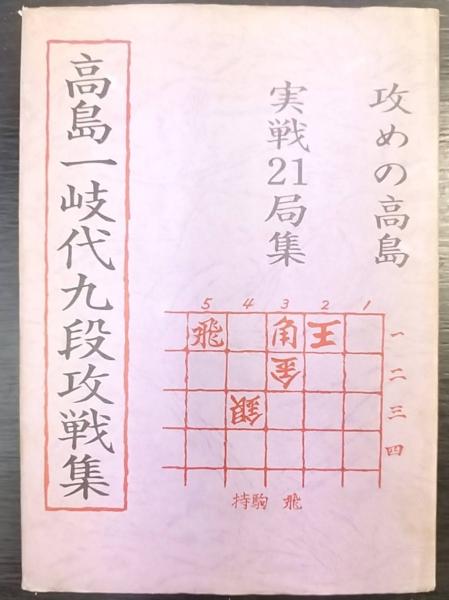 攻めの高島
実戦21局集
高島一岐代九段攻戦集
5 4 3 2 1
飛 角 王 一
金 二
銀 三
四
持駒 飛